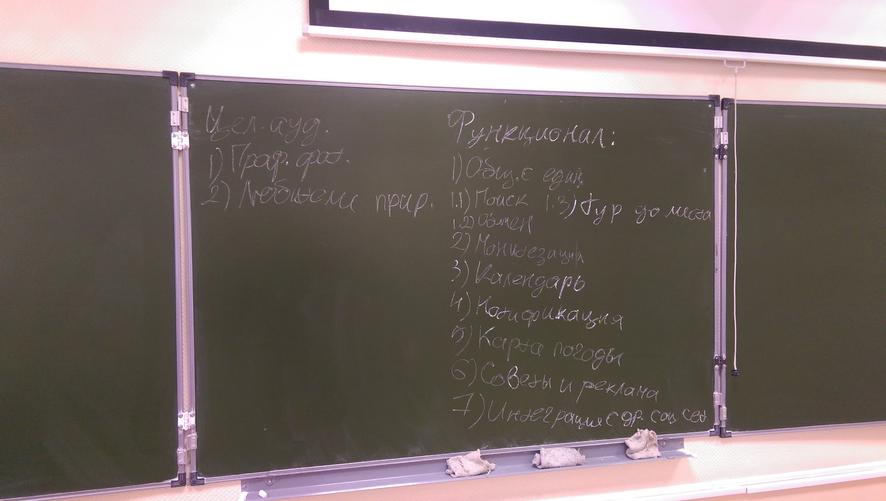 Цел. ауд.
1) Проф. фот.
2) Любители прир.
Функционал:
1) Общ. с един.
1.1) Поиск 1.3) Тур до места
1.2) Обмен
2) Монитезация
3) Календарь
4) Нотификация
5) Карта погоды
6) Советы и реклама
7) Интеграция с др. соц сет